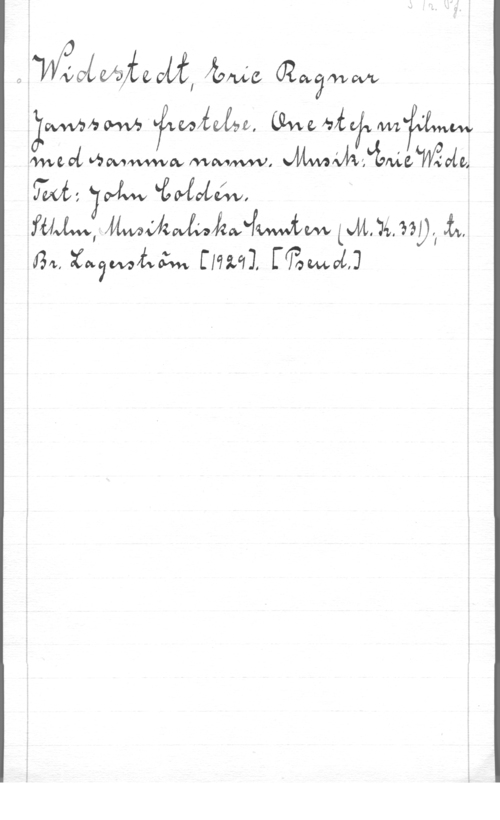 Widestedt, Eric Ragnar
Janssons frestelse. One step ur filmen
med samma namn. Musik: Eric Wide.
Text: John Coldén.
Sthlm, Musikaliska knuten (M. K. 331); tr.
Br. Lagerström [1929]. [Pseud.]